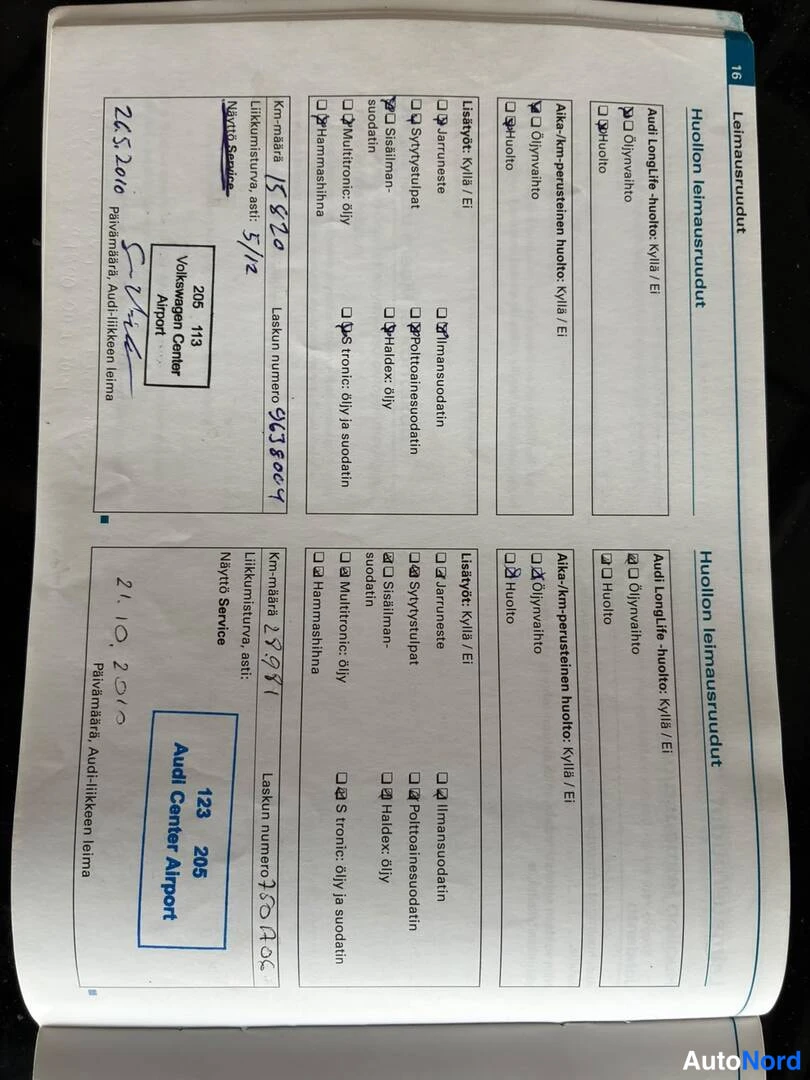 16
Leimausruudut
Huollon leimausruudut
Audi LongLife -huolto: Kyllä / Ei
Öljynvaihto
Huolto
Aika-/km-perusteinen huolto: Kyllä / Ei
Öljynvaihto
Huolto
Lisätyöt: Kyllä / Ei
Jarruneste
Ilmansuodatin
Sytytystulpat
Polttoainesuodatin
Sisäilman-
suodatin
Haldex: öljy
Multitronic: öljy
S tronic: öljy ja suodatin
Hammashihna
Km-määrä 15820
Laskun numero 9638004
Liikkumisturva, asti: 5/12
Näyttö Service
205 113
Volkswagen Center
Airport
26.5.2010
Päivämäärä, Audi-liikkeen leima
Huollon leimausruudut
Audi LongLife -huolto: Kyllä / Ei
Öljynvaihto
Huolto
Aika-/km-perusteinen huolto: Kyllä / Ei
Öljynvaihto
Huolto
Lisätyöt: Kyllä / Ei
Jarruneste
Ilmansuodatin
Sytytystulpat
Polttoainesuodatin
Sisäilman-
suodatin
Haldex: öljy
Multitronic: öljy
S tronic: öljy ja suodatin
Hammashihna
Km-määrä 28.981
Laskun numero
Liikkumisturva, asti:
Näyttö Service
123 205
Audi Center Airport
21.10.2010
Päivämäärä, Audi-liikkeen leima
AutoNord